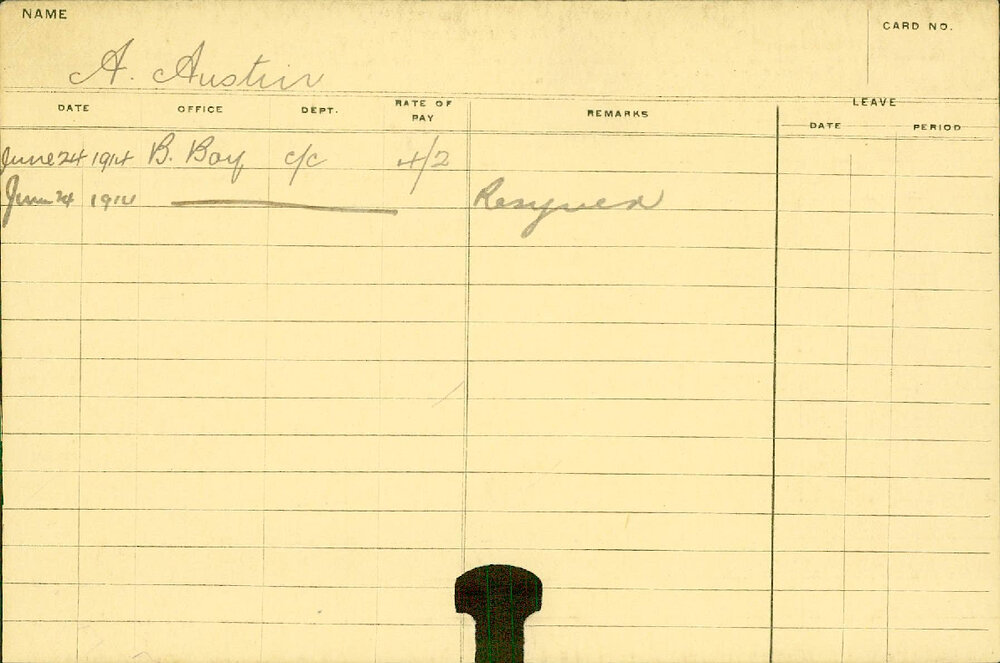 NAME
CARD NO.
A. Austin
DATE OFFICE DEPT. RATE OF PAY REMARKS LEAVE
DATE PERIOD
June 24 1914 B. Boy c/c 4/2
June 24 1914 Resigned